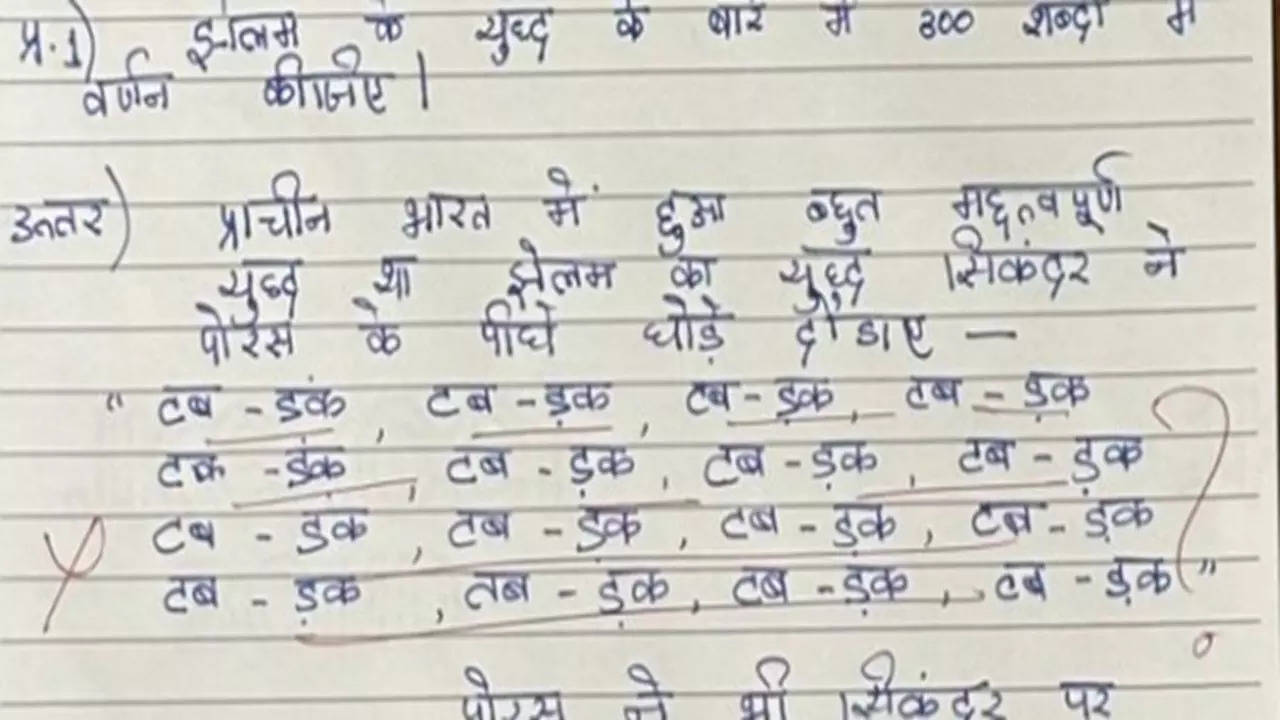 प्र.1) झेलम के युध्द के बारे में 300 शब्दों में
वर्णन कीजिए।
उत्तर) प्राचीन भारत में हुआ बहुत महत्वपूर्ण
युध्द था झेलम का युध्द सिकंदर ने
पोरस के पीछे घोड़े दौडाए —
“ टब - डंक , टब - ड़क , टब - ड़क , टब - ड़क
टक - डंक , टब - ड़क , टब - ड़क , टब - ड़क
टब - डक , टब - ड़क , टब - ड़क , टब - ड़क
टब - ड़क , तब - ड़क , टब - ड़क , टब - ड़क ”
पोरस ने भी सिकंदर पर